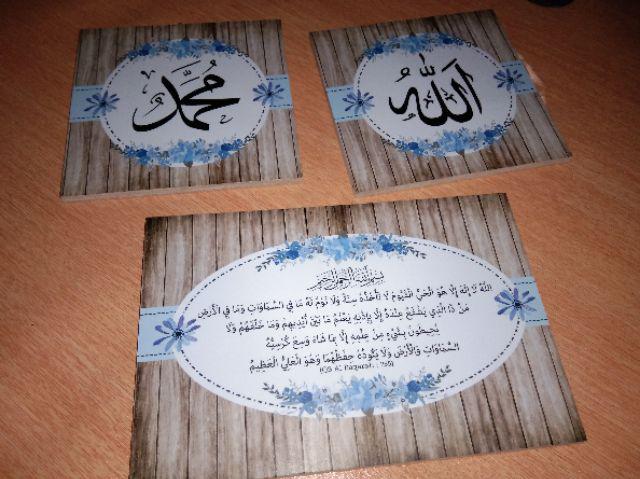 مُحَمَّد
اللّٰهُ
بِسْمِ اللَّهِ الرَّحْمَنِ الرَّحِيمِ
اللَّهُ لَا إِلَهَ إِلَّا هُوَ الْحَيُّ الْقَيُّومُ لَا تَأْخُذُهُ سِنَةٌ وَلَا نَوْمٌ لَهُ مَا فِي السَّمَاوَاتِ وَمَا فِي الْأَرْضِ
مَنْ ذَا الَّذِي يَشْفَعُ عِنْدَهُ إِلَّا بِإِذْنِهِ يَعْلَمُ مَا بَيْنَ أَيْدِيهِمْ وَمَا خَلْفَهُمْ وَلَا
يُحِيطُونَ بِشَيْءٍ مِنْ عِلْمِهِ إِلَّا بِمَا شَاءَ وَسِعَ كُرْسِيُّهُ
السَّمَاوَاتِ وَالْأَرْضَ وَلَا يَئُودُهُ حِفْظُهُمَا وَهُوَ الْعَلِيُّ الْعَظِيمُ
(QS Al Baqarah : 255)